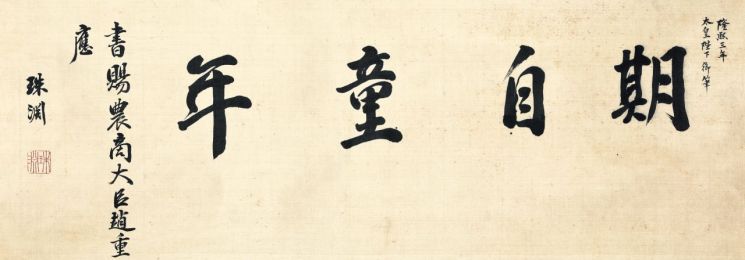 隆熙三年
太皇陛下御筆
期自童年
書賜農商大臣趙重
應
珠淵